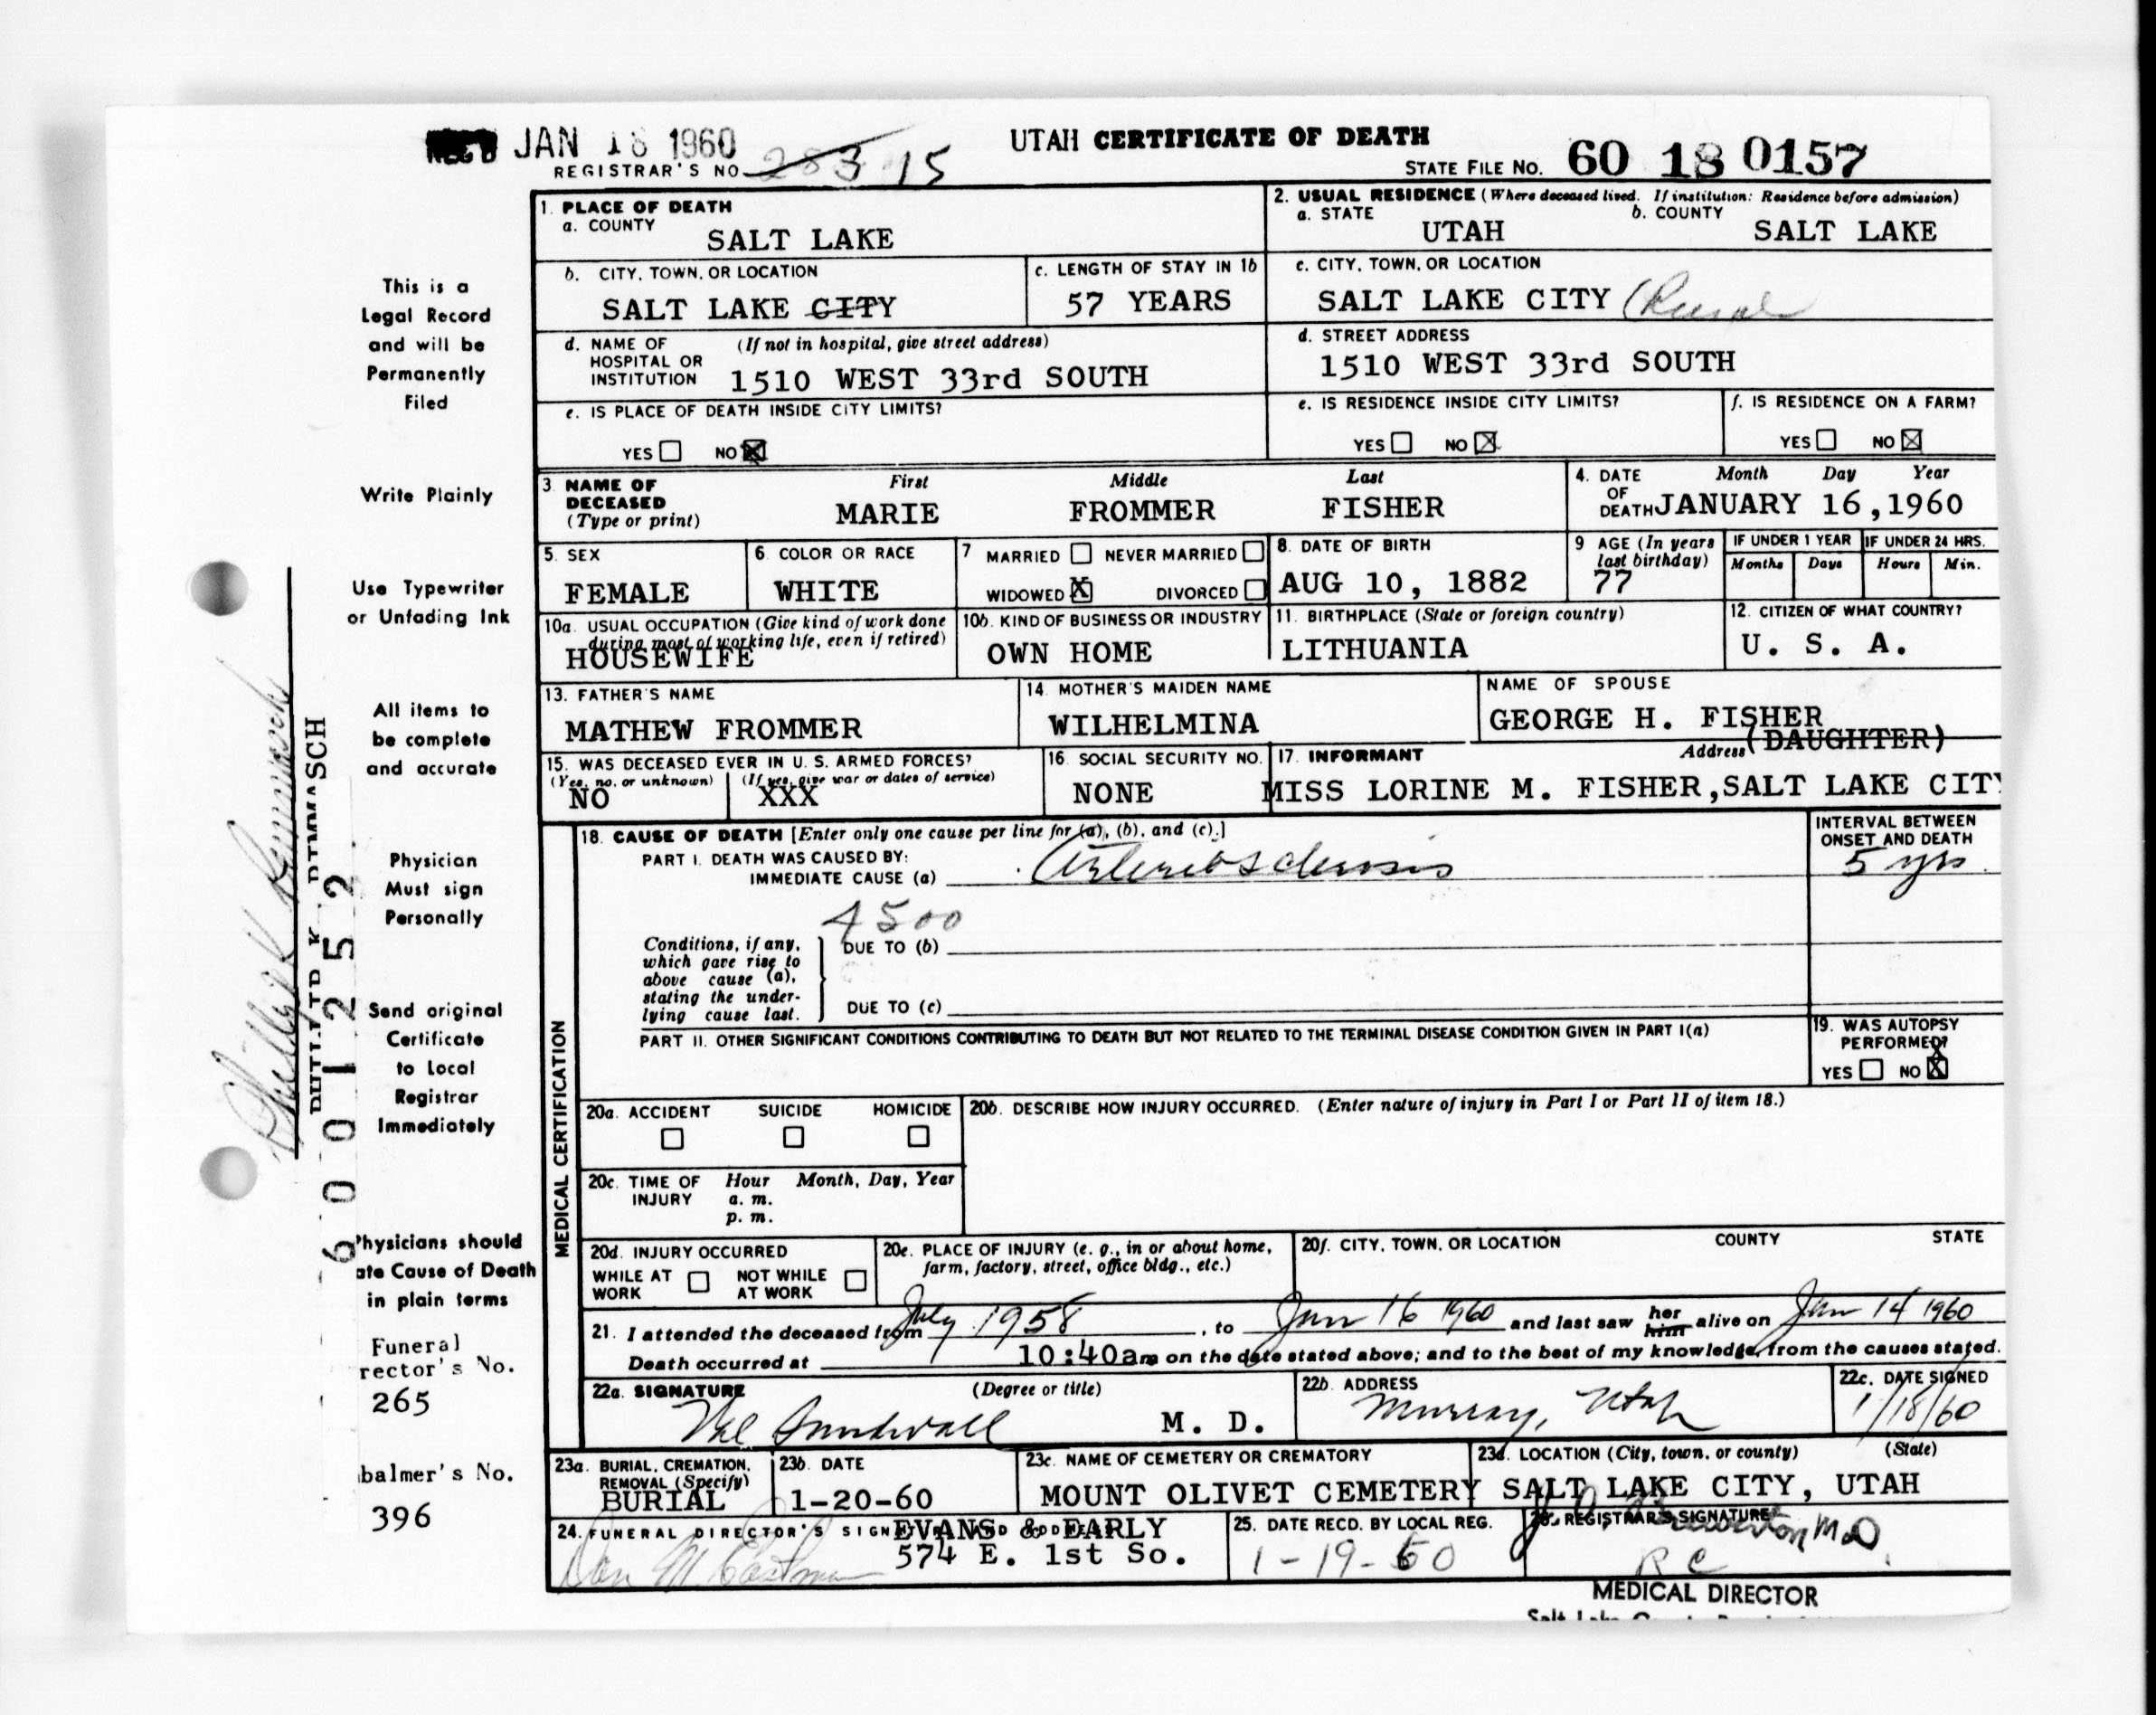 REC'D JAN 18 1960
UTAH CERTIFICATE OF DEATH
REGISTRAR'S NO 283 15
STATE FILE NO. 60 18 0157
1. PLACE OF DEATH
a. COUNTY
SALT LAKE
2. USUAL RESIDENCE (Where deceased lived. If institution: Residence before admission)
a. STATE b. COUNTY
UTAH SALT LAKE
b. CITY, TOWN, OR LOCATION
SALT LAKE CITY
c. LENGTH OF STAY IN 1b
57 YEARS
c. CITY, TOWN, OR LOCATION
SALT LAKE CITY (Rural
d. NAME OF HOSPITAL OR INSTITUTION (If not in hospital, give street address)
1510 WEST 33rd SOUTH
d. STREET ADDRESS
1510 WEST 33rd SOUTH
e. IS PLACE OF DEATH INSIDE CITY LIMITS?
YES NO X
e. IS RESIDENCE INSIDE CITY LIMITS?
YES NO X
f. IS RESIDENCE ON A FARM?
YES NO X
3. NAME OF DECEASED (Type or print)
First Middle Last
MARIE FROMMER FISHER
4. DATE OF DEATH Month Day Year
JANUARY 16, 1960
5. SEX
FEMALE
6. COLOR OR RACE
WHITE
7 MARRIED NEVER MARRIED
WIDOWED X DIVORCED
8. DATE OF BIRTH
AUG 10, 1882
9 AGE (In years last birthday)
77
IF UNDER 1 YEAR IF UNDER 24 HRS.
Months Days Hours Min.
10a. USUAL OCCUPATION (Give kind of work done during most of working life, even if retired)
HOUSEWIFE
10b. KIND OF BUSINESS OR INDUSTRY
OWN HOME
11. BIRTHPLACE (State or foreign country)
LITHUANIA
12. CITIZEN OF WHAT COUNTRY?
U. S. A.
13. FATHER'S NAME
MATHEW FROMMER
14. MOTHER'S MAIDEN NAME
WILHELMINA
NAME OF SPOUSE
GEORGE H. FISHER
15. WAS DECEASED EVER IN U. S. ARMED FORCES?
(Yes, no, or unknown) (If yes, give war or dates of service)
NO XXX
16. SOCIAL SECURITY NO.
NONE
17. INFORMANT Address (DAUGHTER)
MISS LORINE M. FISHER, SALT LAKE CITY
MEDICAL CERTIFICATION
18. CAUSE OF DEATH [Enter only one cause per line for (a), (b), and (c).]
PART I. DEATH WAS CAUSED BY:
IMMEDIATE CAUSE (a) Arteriosclerosis
INTERVAL BETWEEN ONSET AND DEATH
5 yrs.
4500
Conditions, if any, which gave rise to above cause (a), stating the underlying cause last.
DUE TO (b)
DUE TO (c)
PART II. OTHER SIGNIFICANT CONDITIONS CONTRIBUTING TO DEATH BUT NOT RELATED TO THE TERMINAL DISEASE CONDITION GIVEN IN PART I(a)
19. WAS AUTOPSY PERFORMED?
YES NO X
20a. ACCIDENT SUICIDE HOMICIDE
20b. DESCRIBE HOW INJURY OCCURRED. (Enter nature of injury in Part I or Part II of item 18.)
20c. TIME OF INJURY Hour Month, Day, Year
a. m.
p. m.
20d. INJURY OCCURRED
WHILE AT WORK NOT WHILE AT WORK
20e. PLACE OF INJURY (e. g., in or about home, farm, factory, street, office bldg., etc.)
20f. CITY, TOWN, OR LOCATION COUNTY STATE
21. I attended the deceased from July 1958, to Jan 16 1960 and last saw her him alive on Jan 14 1960
Death occurred at 10:40am on the date stated above; and to the best of my knowledge, from the causes stated.
22a. SIGNATURE (Degree or title)
Val Sundwall M. D.
22b. ADDRESS
Murray, Utah
22c. DATE SIGNED
1/18/60
23a. BURIAL, CREMATION, REMOVAL (Specify)
BURIAL
23b. DATE
1-20-60
23c. NAME OF CEMETERY OR CREMATORY
MOUNT OLIVET CEMETERY
23d. LOCATION (City, town, or county) (State)
SALT LAKE CITY, UTAH
24. FUNERAL DIRECTOR'S SIGNATURE AND ADDRESS
EVANS & EARLY
574 E. 1st So.
25. DATE RECD. BY LOCAL REG.
1-19-60
26. REGISTRAR'S SIGNATURE
M D
R C
MEDICAL DIRECTOR
This is a
Legal Record
and will be
Permanently
Filed
Write Plainly
Use Typewriter
or Unfading Ink
All items to
be complete
and accurate
Physician
Must sign
Personally
Send original
Certificate
to Local
Registrar
Immediately
Physicians should
ate Cause of Death
in plain terms
Funeral
rector's No.
265
balmer's No.
396
6 0 0 1 2 5 2